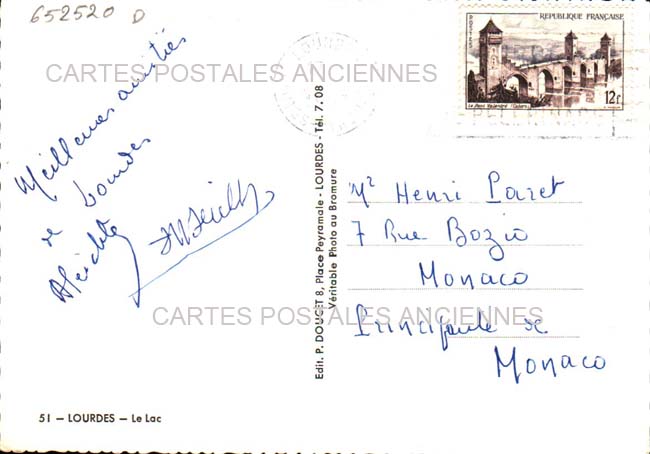 652520 D
RÉPUBLIQUE FRANÇAISE
POSTES
Le Pont Valentré (Cahors)
12f
CARTES POSTALES ANCIENNES
Meilleures amitiés
de Lourdes
Edit. P. DOUCET 8, Place Peyramale - LOURDES - Tél. 7.08
Véritable Photo au Bromure
Mr Henri Paret
7 Rue Bozio
Monaco
Principauté de
Monaco
CARTES POSTALES ANCIENNES
51 — LOURDES — Le Lac